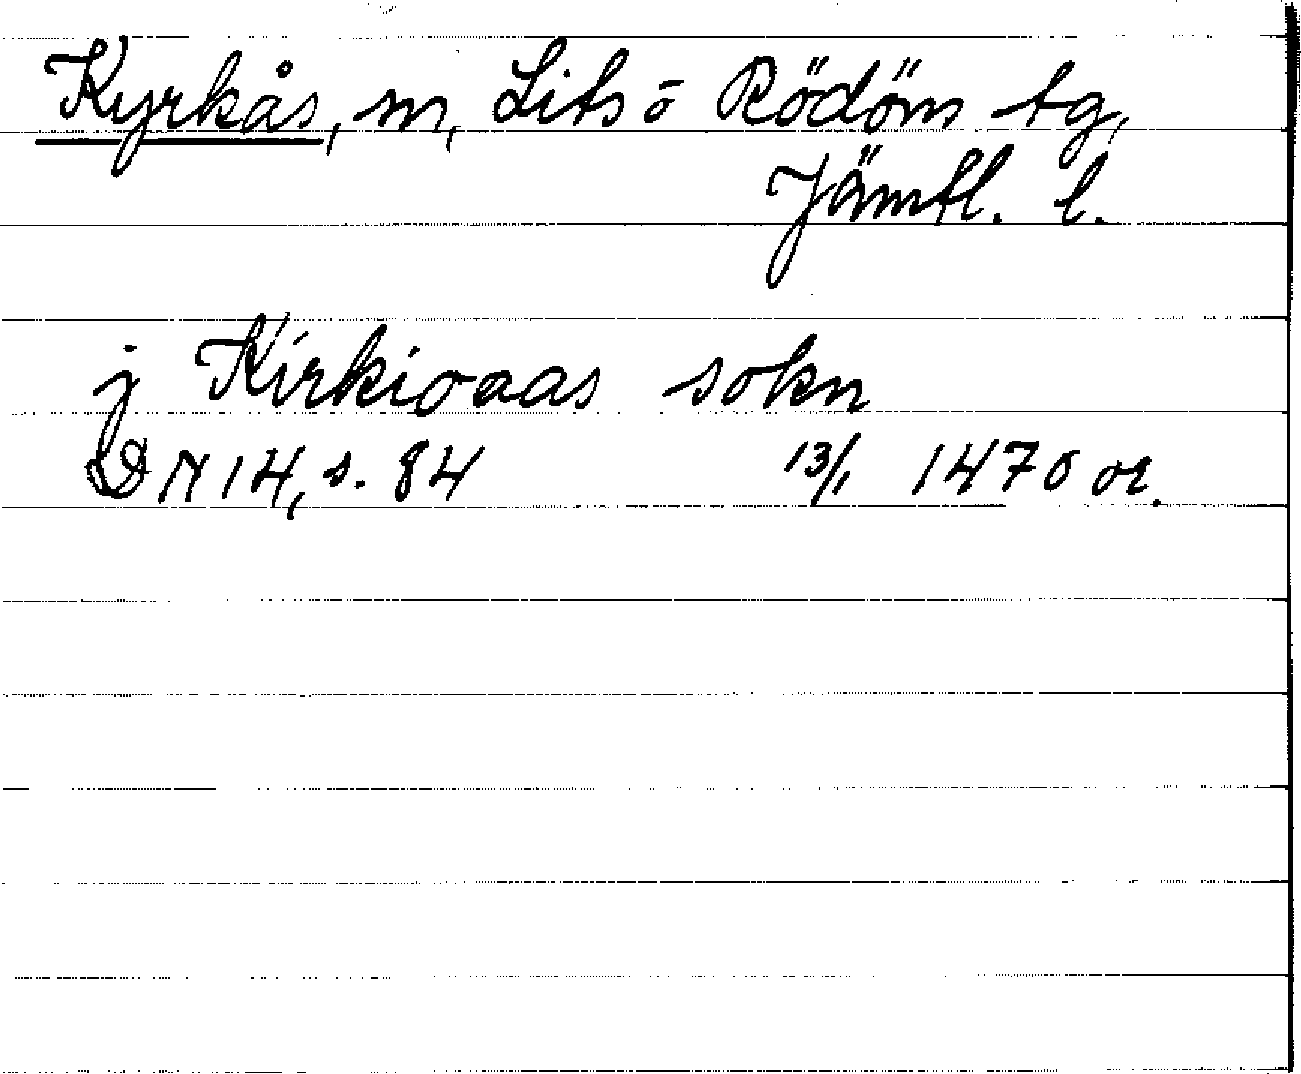 Kyrkås, sn, Lits ō Rödöns tg,
Jämtl. l.
j Kirkioaas sokn
DN 14, s. 84 13/1 1470 or.